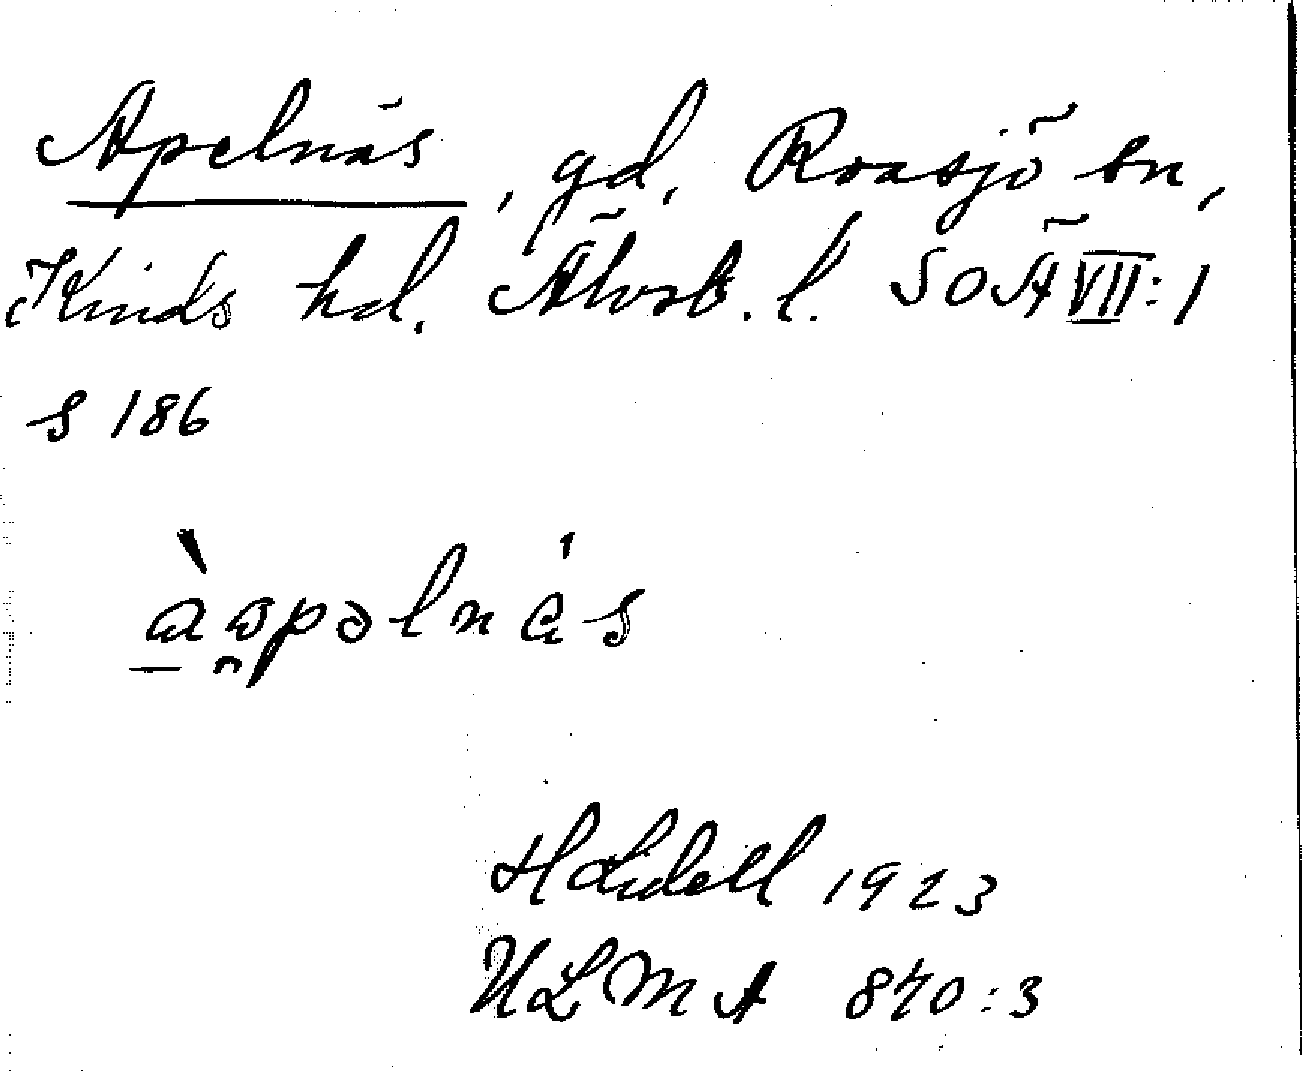 Apelnäs, gd, Roasjö sn,
Kinds hd. Älvsb. l. SOÄ VII:1
s 186
àɷpəlnás
H Lidell 1923
ULMA 840:3